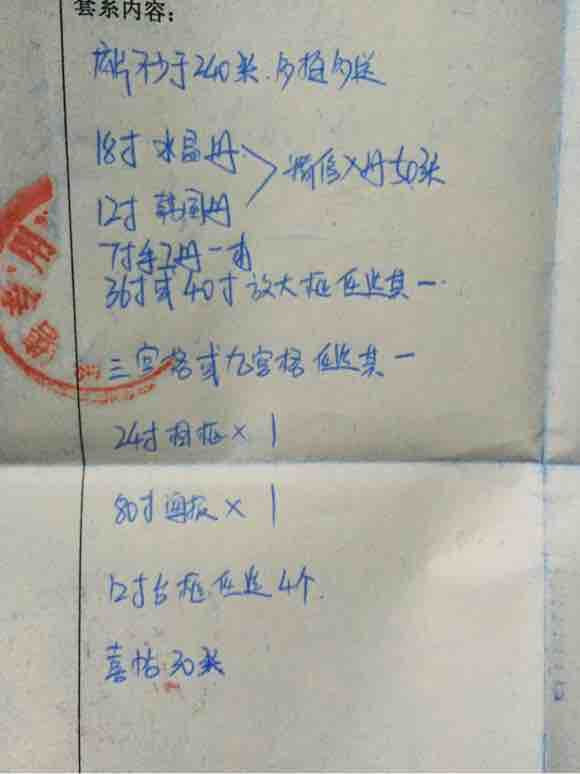 套系内容:
底片不少于240张.多拍多送
18寸 水晶册
精修入册50张
12寸 韩国册
7寸手工册一本
36寸或40寸放大框任选其一.
三宫格或九宫格任选其一
24寸相框×1
80寸海报×1
12寸台框任选4个.
喜帖30张
专用